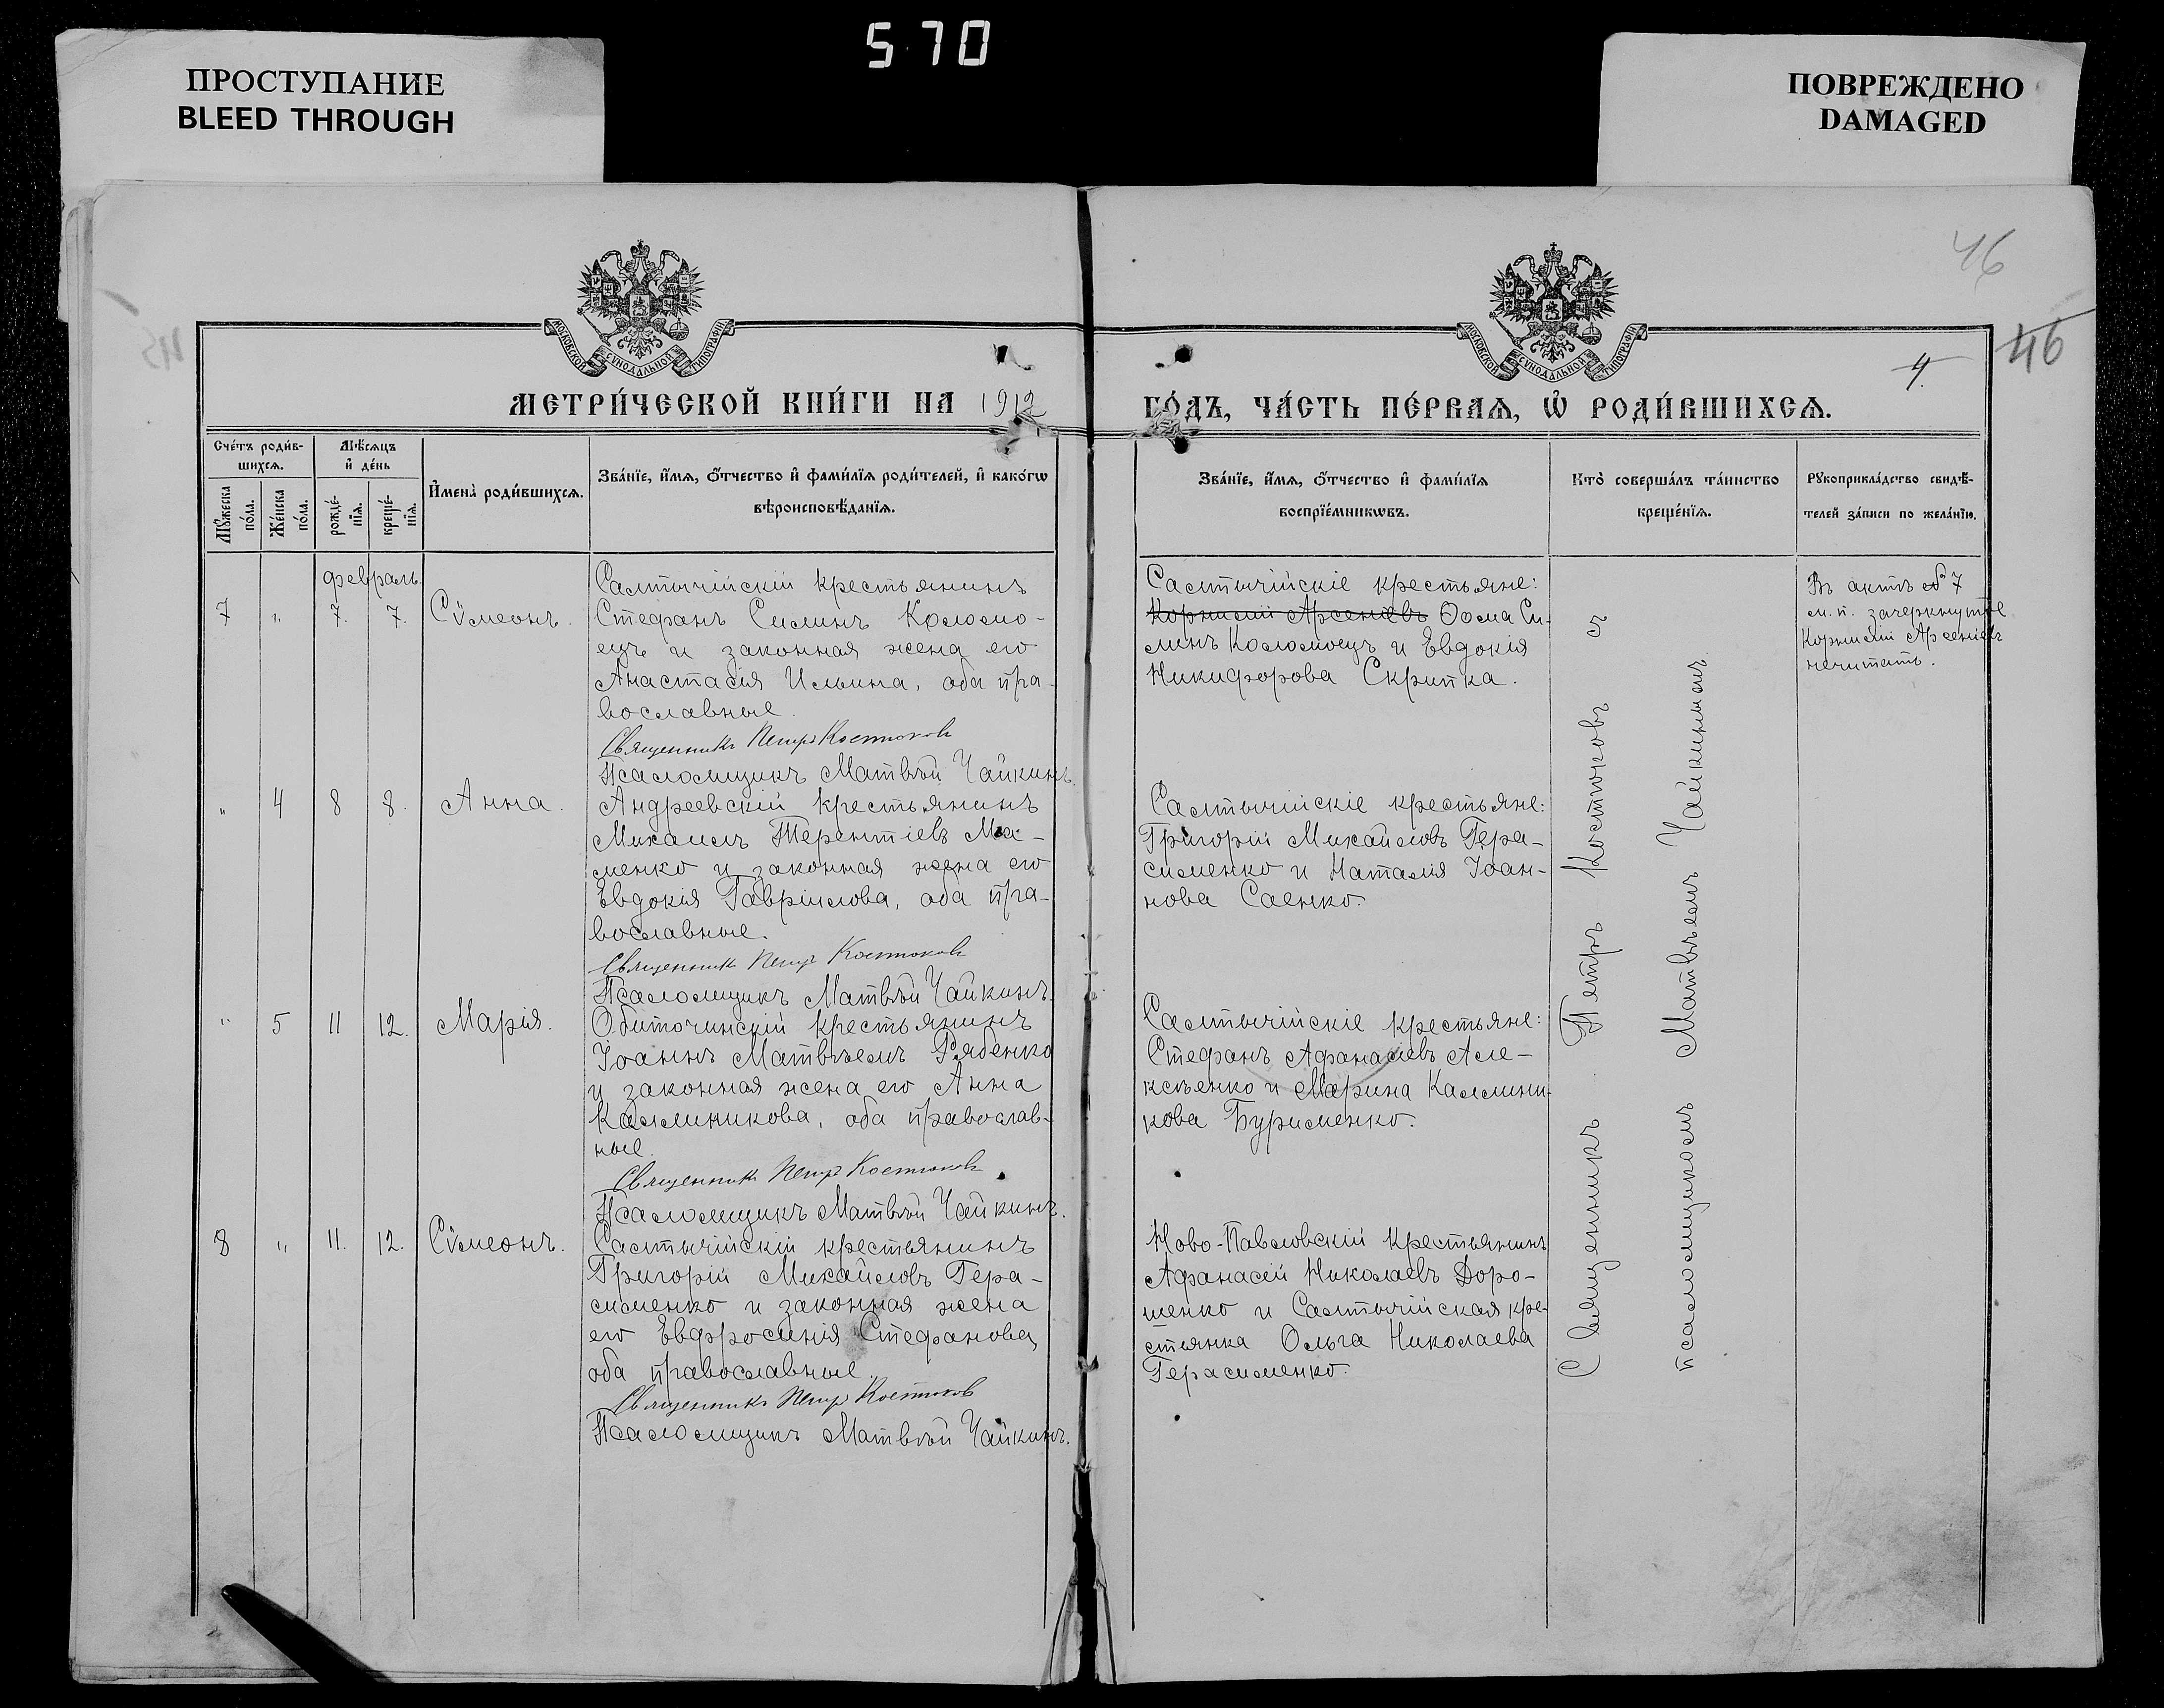 570
ПРОСТУПАНИЕ
BLEED THROUGH
ПОВРЕЖДЕНО
DAMAGED
46
46
4.
МОСКОВСКОЙ СѴНОДАЛЬНОЙ ТИПОГРАФІИ
МОСКОВСКОЙ СѴНОДАЛЬНОЙ ТИПОГРАФІИ
МЕТРИ́ЧЕСКОЙ КНИ́ГИ НА 1912
ГО́ДЪ, ЧА́СТЬ ПЕ́РВАѦ, Ѡ҆ РОДИ́ВШИХСѦ.
Сче́тъ роди́в-
шихсѧ.
Мꙋ́жеска
по́ла.
Же́нска
по́ла.
Мѣ́сѧцъ
и҆ де́нь
рожде́-
нїѧ.
креще́-
нїѧ.
И҆мена̀ роди́вшихсѧ.
Зва́нїе, и҆́мѧ, ѻ҆́тчество и҆ фами́лїѧ роди́телей, и҆ како́гѡ
вѣроисповѣ́данїѧ.
Зва́нїе, и҆́мѧ, ѻ҆́тчество и҆ фами́лїѧ
воспрїе́мникѡвъ.
Кто̀ соверша́лъ та́инство
креще́нїѧ.
Рꙋкоприкла́дство свидѣ́-
телей за́писи по жела́нїю.
февраль.
7 " 7. 7. Сѵмеонъ.
Салтычійскій крестьянинъ
Стефанъ Силинъ Коломо-
ецъ и законная жена его
Анастасія Ильина, оба пра-
вославные.
Священникъ Петръ Костюковъ
Псаломщикъ Матвѣй Чайкинъ.
Салтычійскіе крестьяне:
Корнилій Арсеніевъ Ѳома Си-
линъ Коломоецъ и Евдокія
Никифорова Скрипка.
Въ актѣ № 7
м. п. зачеркнутое
Корнилій Арсеніевъ
нечитать.
" 4 8 8. Анна.
Андреевскій крестьянинъ
Михаилъ Терентіевъ
менко и законная жена его
Евдокія Гавріилова, оба пра-
вославные.
Священникъ Петръ Костюковъ
Псаломщикъ Матвѣй Чайкинъ.
Салтычійскіе крестьяне:
Григорій Михайловъ Гера-
сименко и Наталія Іоан-
нова Саенко.
" 5 11 12. Марія.
Обиточинскій крестьянинъ
Іоаннъ Матвѣевъ Рябенко
и законная жена его Анна
Каллиникова, оба православ-
ные.
Священникъ Петръ Костюковъ
Псаломщикъ Матвѣй Чайкинъ.
Салтычійскіе крестьяне:
Стефанъ Афанасіевъ Але-
ксѣенко и Марина Каллини-
кова Бурименко.
8 " 11. 12. Сѵмеонъ.
Салтычійскій крестьянинъ
Григорій Михайловъ Гера-
сименко и законная жена
его Евфросинія Стефанова,
оба православные.
Священникъ Петръ Костюковъ
Псаломщикъ Матвѣй Чайкинъ.
Ново-Павловскій крестьянинъ
Афанасій Николаевъ Доро-
шенко и Салтычійская кре-
стьянка Ольга Николаева
Герасименко.
Священникъ Петръ Костюковъ съ
псаломщикомъ Матвѣемъ Чайкинымъ